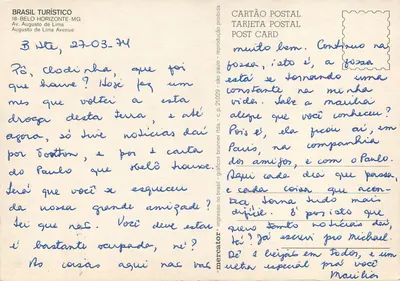 BRASIL TURÍSTICO
18-BELO HORIZONTE-MG
Av. Augusto de Lima
Augusto de Lima Avenue
B Hte, 27-03-74
Pô, Clodinha, que foi
que houve? Hoje faz um
mes que voltei a esta
droga desta terra, e até
agora, só tive notícias daí
por e por 1 carta
do Paulo que Belô trouxe.
Será que você se esqueceu
da nossa grande amizade?
Sei que não. Você deve estar
é bastante ocupada, né?
As coisas aqui não vão
CARTÃO POSTAL
TARJETA POSTAL
POST CARD
muito bem. Continuo na
fossa, isto é, a fossa
está se tornando uma
constante na minha
vida. Sabe a maulia
alegre que você conheceu?
Pois é, ela ficou aí, em
Paris, na companhia
dos amigos, e com o Paulo.
Aqui cada dia que passa,
e cada coisa que acon-
tece, torna tudo mais
difícil. É por isto que
quero tanto notícias daí,
tá? Já escrevi pro Michael.
Dê 1 beijão em todos, e um
especial pra você
mercator
impresso no brasil - gráficos brunner ltda. - c. p. 21029 - são paulo - reprodução proibida